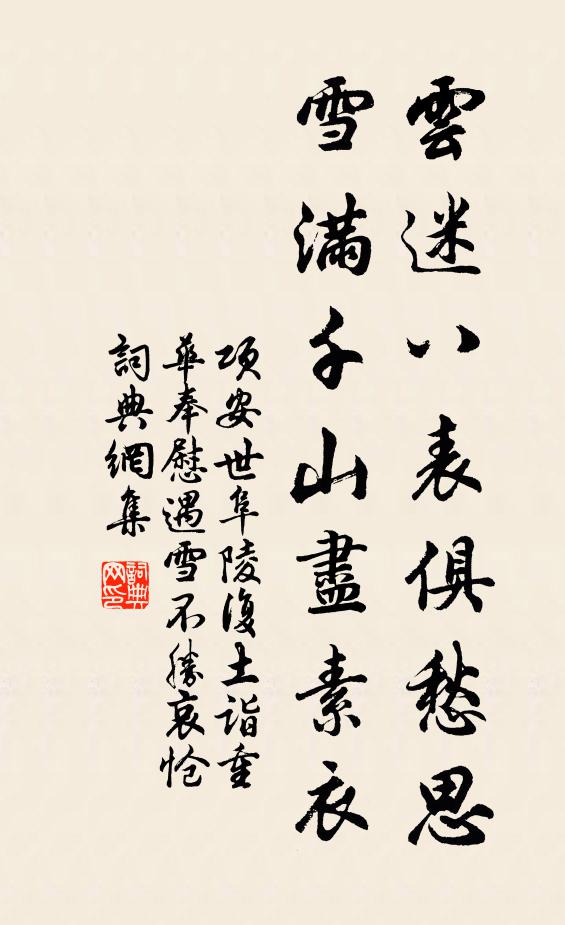 雲迷八表俱愁思
雪滿千山盡素衣
項安世阜陵復土詣重
華奉慰遇雪不勝哀愴
詞典網集
詞典网印